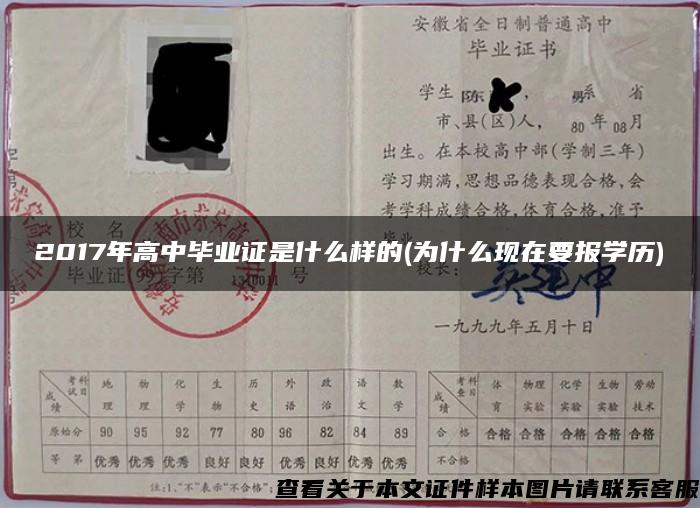 安徽省全日制普通高中
毕业证书
学生 陈 , 男系 省
市、县(区)人, 80年08月
出生。在本校高中部(学制三年)
学习期满,思想品德表现合格,会
考学科成绩合格,体育合格,准予
毕业
校 名
2017年高中毕业证是什么样的(为什么现在要报学历)
毕业证(99)字第 号
校长:
一九九九年五月十日
考科试目 地理 物理 化学 生物 历史 外语 政治 语文 数学
成绩
原始分 90 95 92 77 80 96 82 84 89
等第 优秀 优秀 优秀 良好 良好 优秀 优秀 优秀 优秀
考科查目 体育 物理实验 化学实验 生物实验 劳动技术
成绩
合格 合格 合格 合格 合格 合格
不合格
注:1、“不”表示“不合格”;
查看关于本文证件样本图片请联系客服